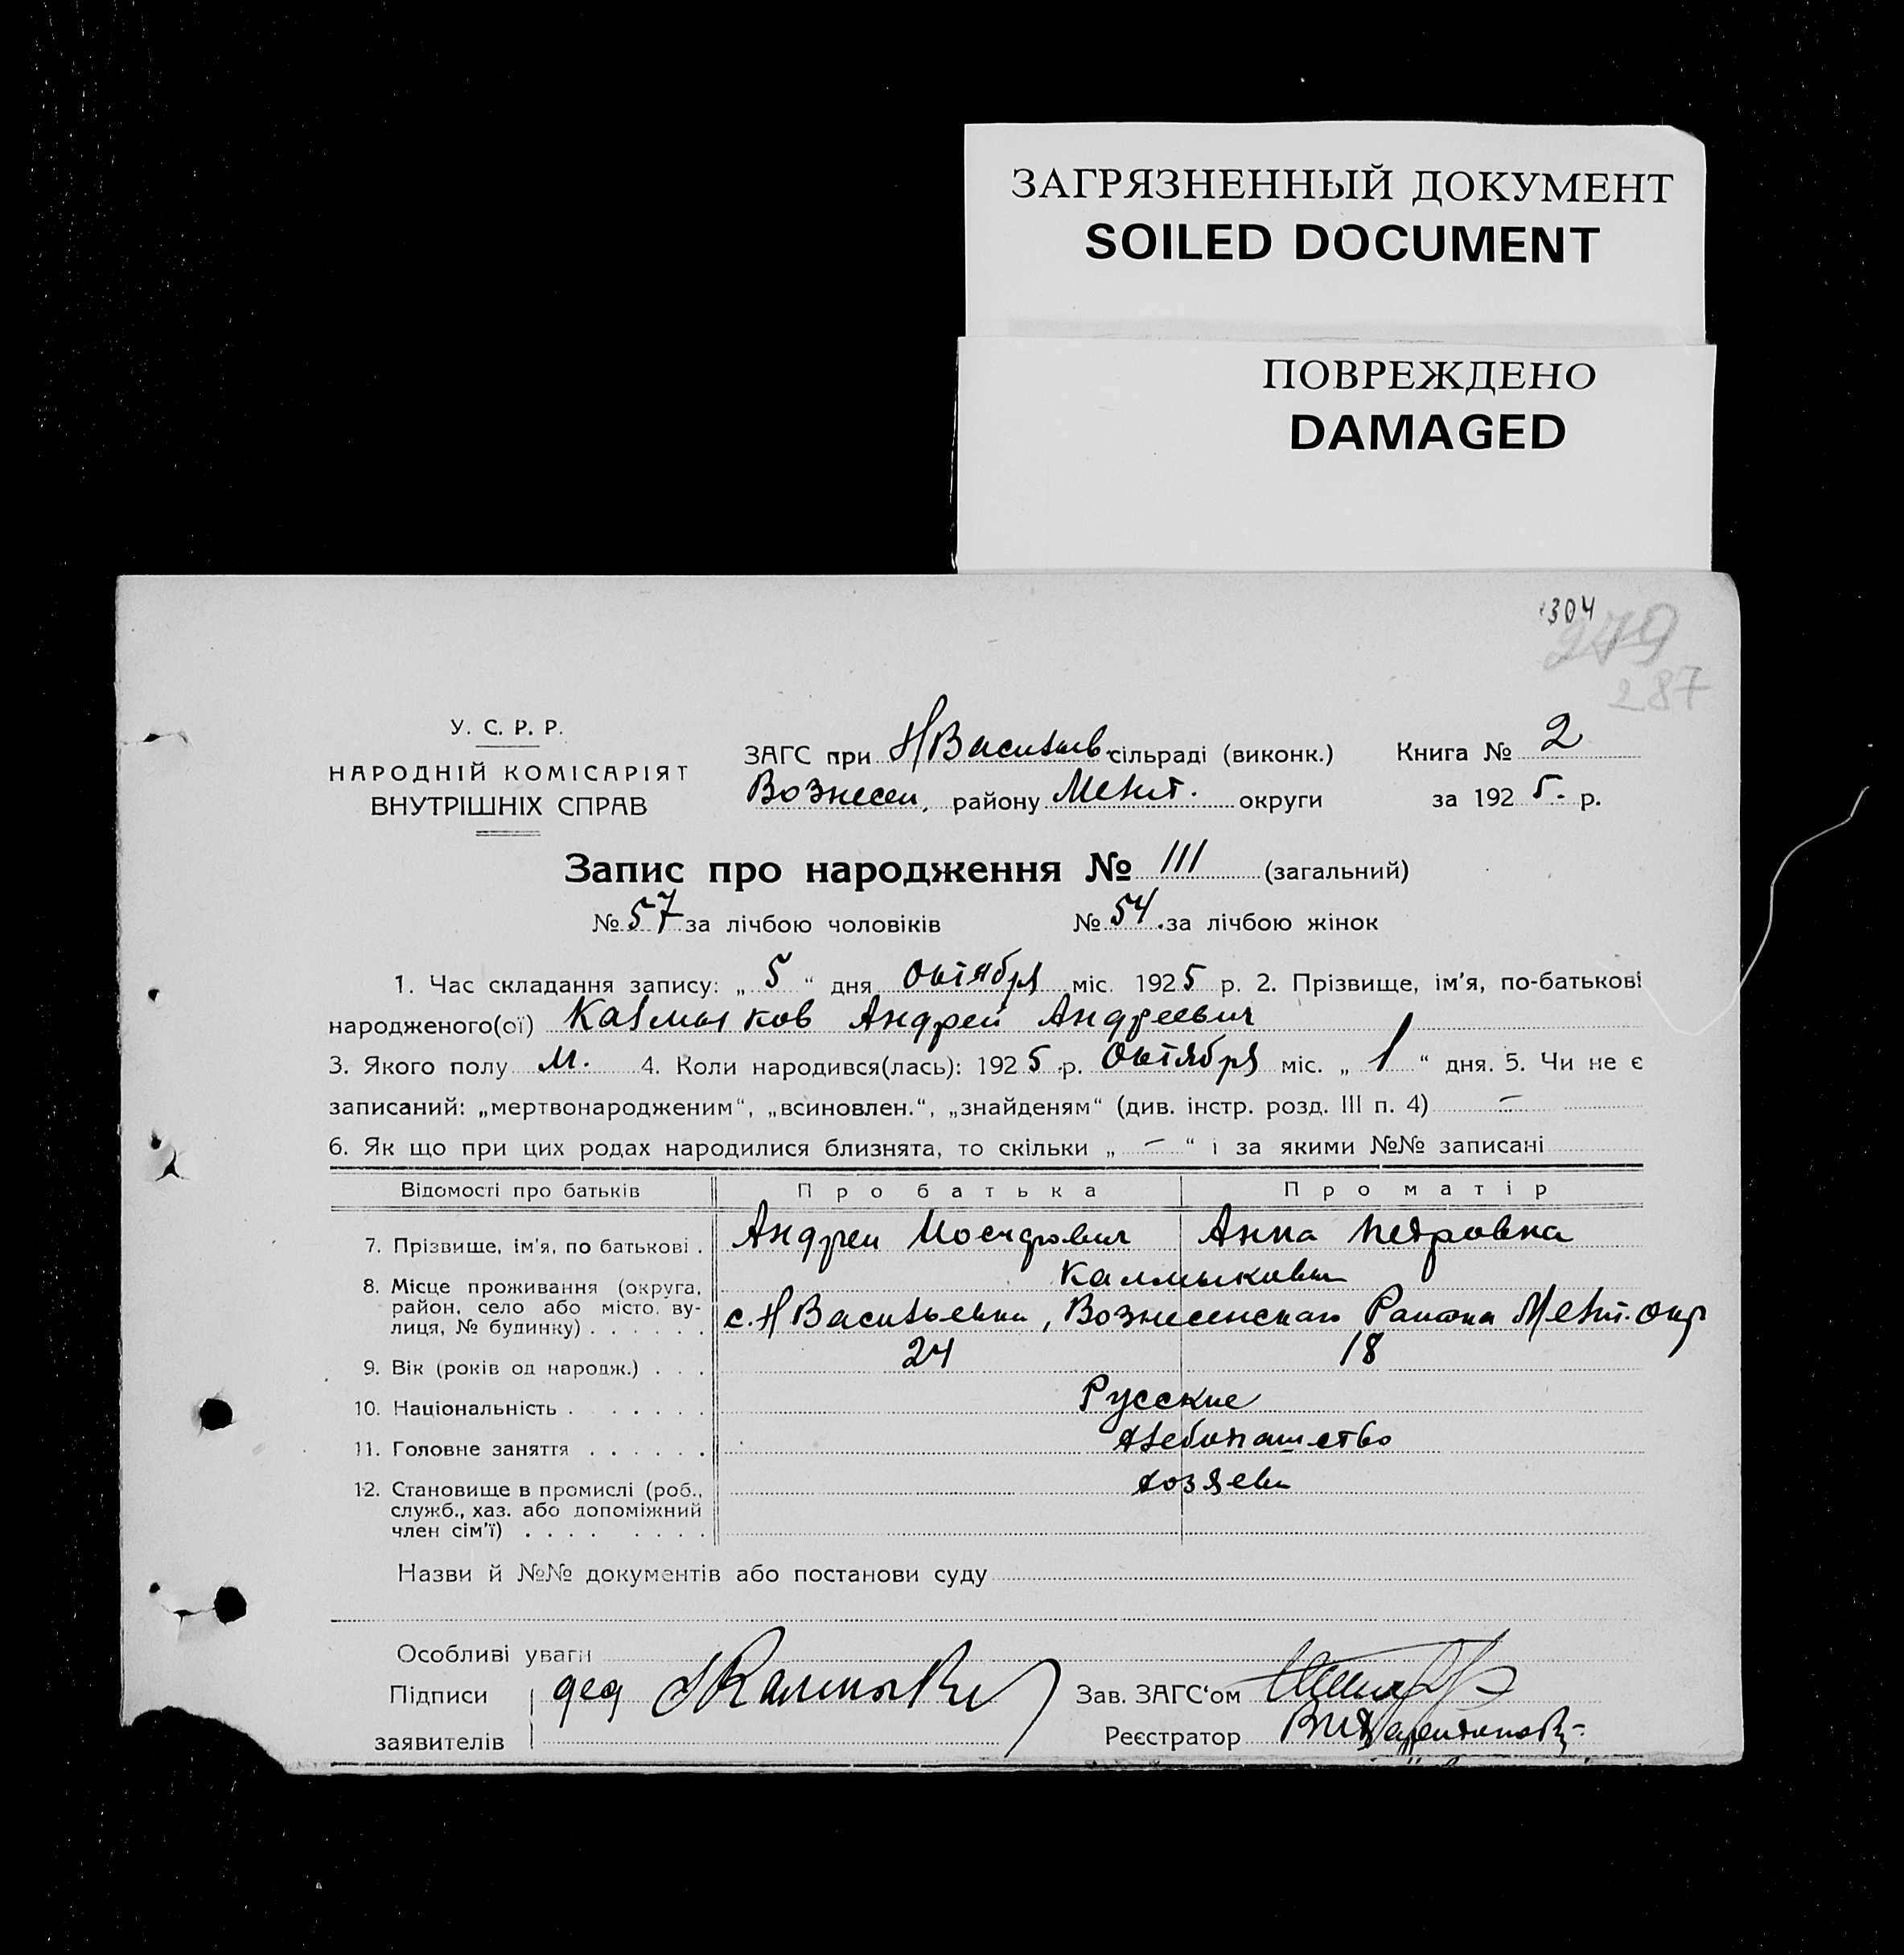 ЗАГРЯЗНЕННЫЙ ДОКУМЕНТ
SOILED DOCUMENT
ПОВРЕЖДЕНО
DAMAGED
304
279
287
У. С. Р. Р.
НАРОДНІЙ КОМІСАРІЯТ
ВНУТРІШНІХ СПРАВ
ЗАГС при НВасильев. сільраді (виконк.) Книга № 2
Вознесен, району Мелит. округи за 192 5. р.
Запис про народження № 111 (загальний)
№ 57 за лічбою чоловіків № 54. за лічбою жінок
1. Час складання запису: „ 5 “ дня октября міс. 192 5 р. 2. Прізвище, ім'я, по-батькові
народженого(ої) Калмыков Андрей Андреевич
3. Якого полу м. 4. Коли народився(лась): 192 5 р. октября міс. „ 1 “ дня. 5. Чи не є
записаний: „мертвонародженим“, „всиновлен.“, „знайденям“ (див. інстр. розд. III п. 4) —
6. Як що при цих родах народилися близнята, то скільки „ — “ і за якими №№ записані
Відомості про батьків Про батька Про матір
7. Прізвище, ім'я, по батькові . Андрей Иосифович Анна Петровна
Калмыковы
8. Місце проживання (округа, район, село або місто, ву-
лиця, № будинку) . . . . . . с. НВасильевки, Вознесенскаго Района Мелит. окр
9. Вік (років од народж.) . . . 24 18
10. Національність . . . . . . Русские
11. Головне заняття . . . . . . хлебопашество
12. Становище в промислі (роб., хозяева
служб., хаз. або допоміжний
член сім'ї) . . . . . . . .
Назви й №№ документів або постанови суду
Особливі уваги
Підписи дед Калмыков Зав. ЗАГС'ом
заявителів Реєстратор